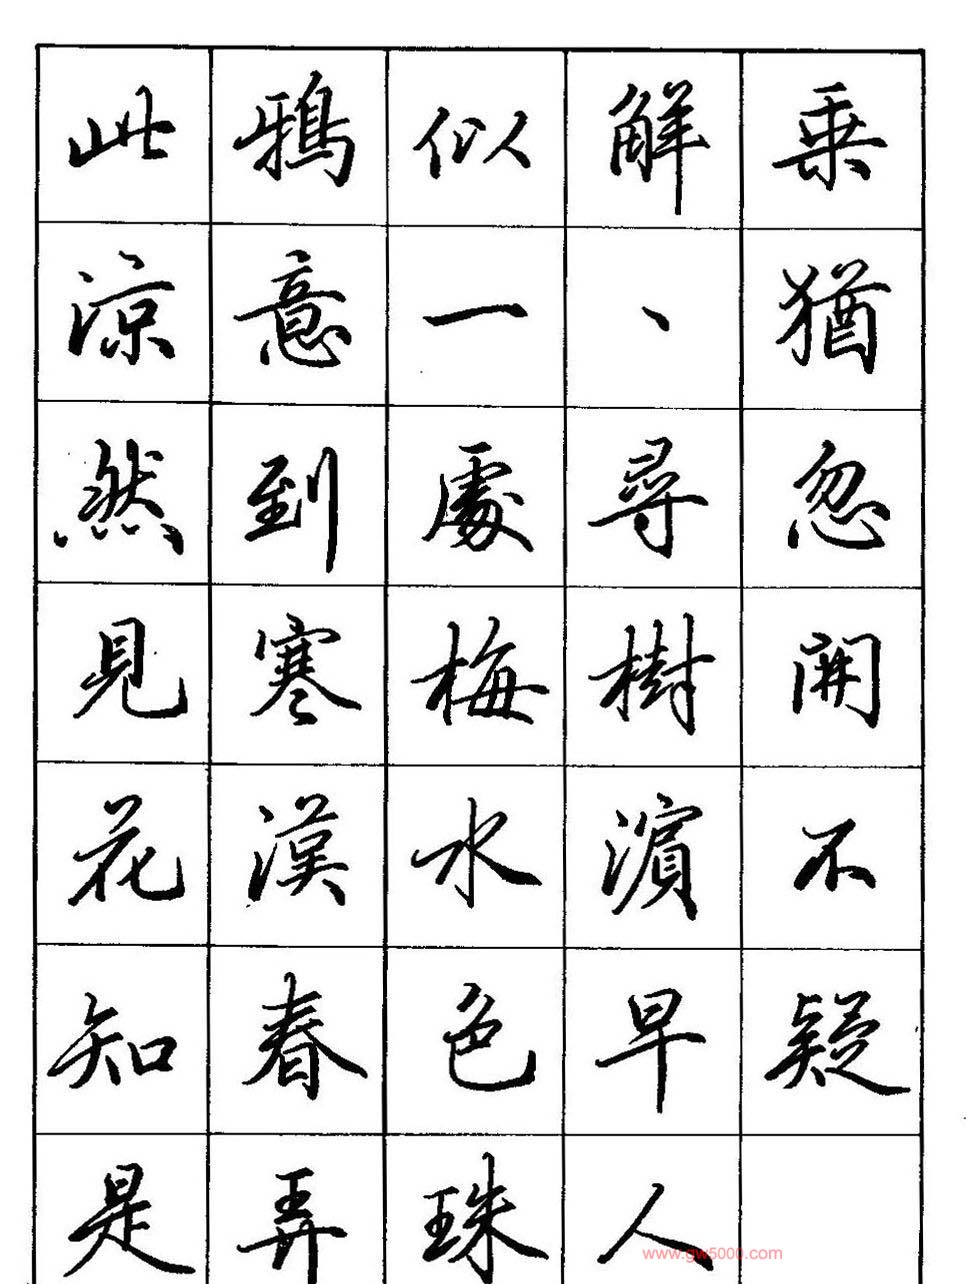 此鴉似解乘
涼意一、猶
然到處尋忽
見寒梅樹開
花漢水濱不
知春色早疑
是弄珠人
www.gw5000.com